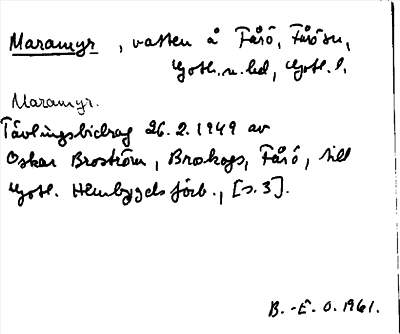 Maramyr, vatten å Fårö, Fårösn,
Gotl. n. hd, Gotl. l.
Maramyr.
Tävlingsbidrag 26.2.1949 av
Oskar Broström, Broskogs, Fårö, till
Gotl. Hembygdsförb., [s.3].
B.-E. O. 1961.